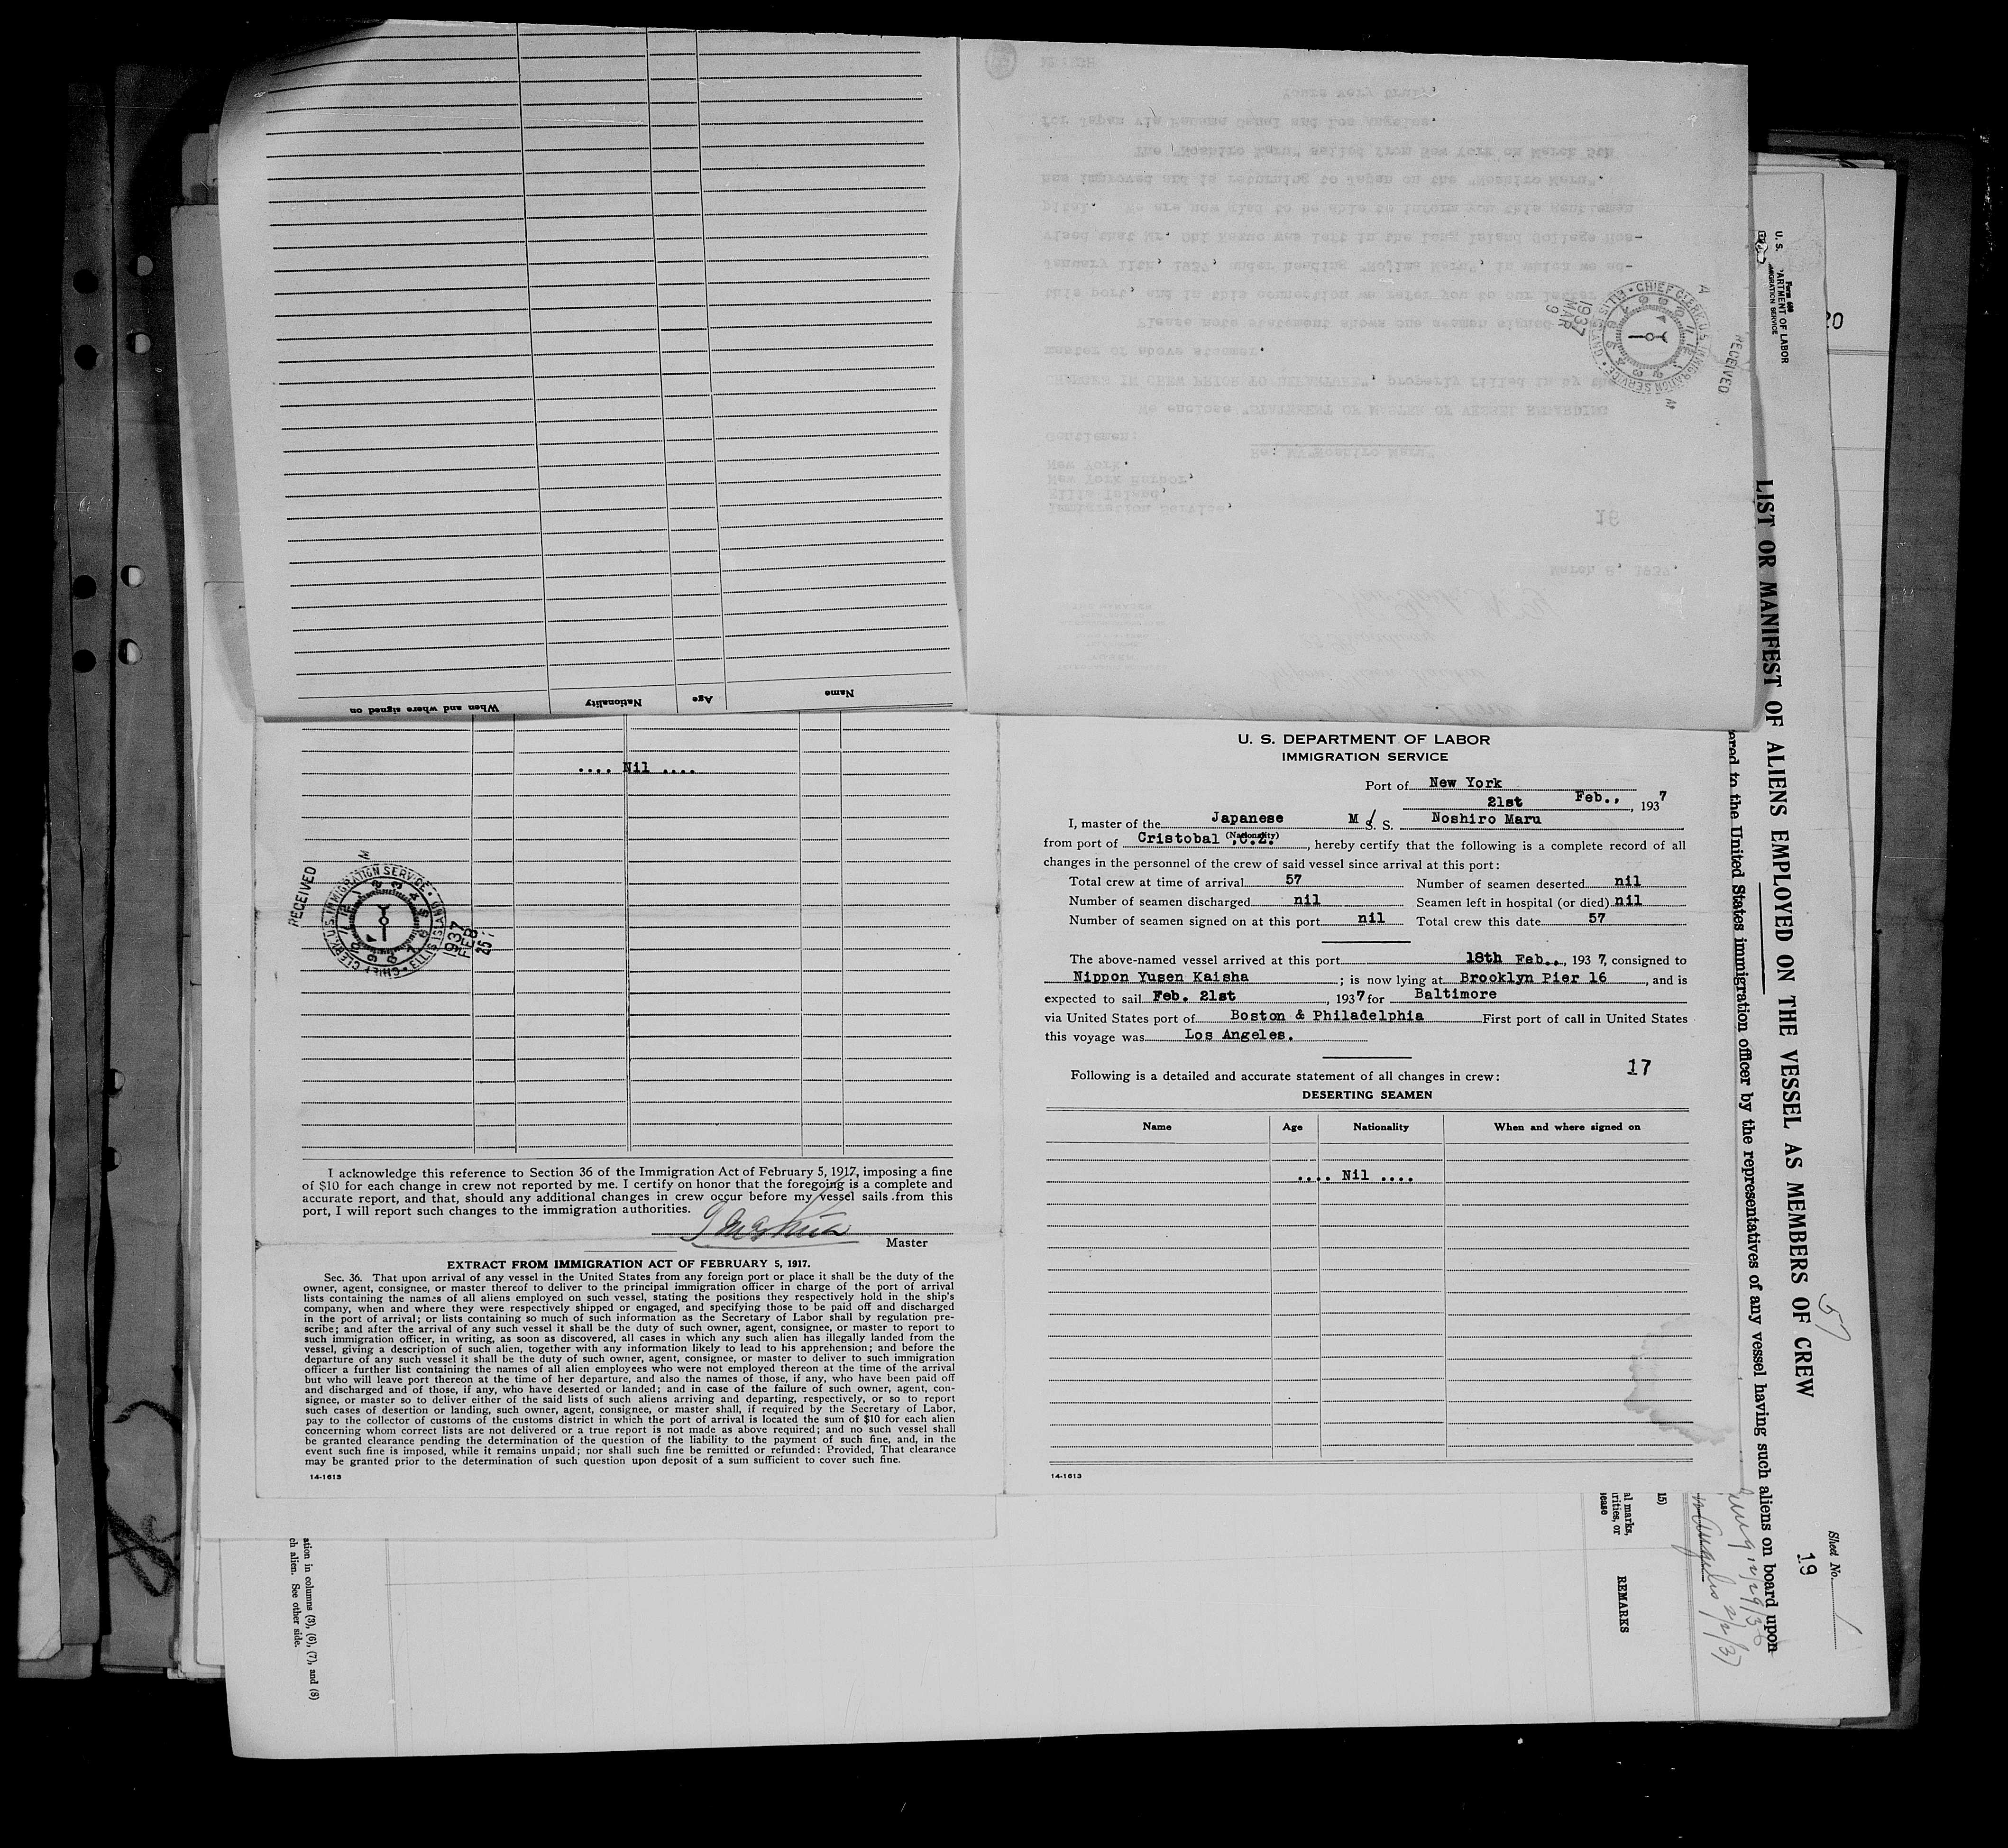 When and where signed on
Nationality
Age
Name
.... Nil ....
RECEIVED
CHIEF CLERK U.S. IMMIGRATION SERVICE • ELLIS ISLAND
1937
FEB
25
I acknowledge this reference to Section 36 of the Immigration Act of February 5, 1917, imposing a fine
of $10 for each change in crew not reported by me. I certify on honor that the foregoing is a complete and
accurate report, and that, should any additional changes in crew occur before my vessel sails from this
port, I will report such changes to the immigration authorities.
Master
EXTRACT FROM IMMIGRATION ACT OF FEBRUARY 5, 1917.
Sec. 36. That upon arrival of any vessel in the United States from any foreign port or place it shall be the duty of the
owner, agent, consignee, or master thereof to deliver to the principal immigration officer in charge of the port of arrival
lists containing the names of all aliens employed on such vessel, stating the positions they respectively hold in the ship's
company, when and where they were respectively shipped or engaged, and specifying those to be paid off and discharged
in the port of arrival; or lists containing so much of such information as the Secretary of Labor shall by regulation pre-
scribe; and after the arrival of any such vessel it shall be the duty of such owner, agent, consignee, or master to report to
such immigration officer, in writing, as soon as discovered, all cases in which any such alien has illegally landed from the
vessel, giving a description of such alien, together with any information likely to lead to his apprehension; and before the
departure of any such vessel it shall be the duty of such owner, agent, consignee, or master to deliver to such immigration
officer a further list containing the names of all alien employees who were not employed thereon at the time of the arrival
but who will leave port thereon at the time of her departure, and also the names of those, if any, who have been paid off
and discharged and of those, if any, who have deserted or landed; and in case of the failure of such owner, agent, con-
signee, or master so to deliver either of the said lists of such aliens arriving and departing, respectively, or so to report
such cases of desertion or landing, such owner, agent, consignee, or master shall, if required by the Secretary of Labor,
pay to the collector of customs of the customs district in which the port of arrival is located the sum of $10 for each alien
concerning whom correct lists are not delivered or a true report is not made as above required; and no such vessel shall
be granted clearance pending the determination of the question of the liability to the payment of such fine, and, in the
event such fine is imposed, while it remains unpaid; nor shall such fine be remitted or refunded: Provided, That clearance
may be granted prior to the determination of such question upon deposit of a sum sufficient to cover such fine.
14-1613
March 6, 1937.
16
Immigration Service,
Ellis Island,
New York Harbor,
New York.
Re: MV"Noshiro Maru"
Gentlemen:
We enclose "STATEMENT OF MASTER OF VESSEL REGARDING
CHANGES IN CREW PRIOR TO DEPARTURE", properly filled in by the
master of above steamer.
lease note statement shows one seaman signed
this port, and in this connection we refer you to our letter
January 11th, 1937, under heading "Nojima Maru", in which we ad-
vised that Mr. Obi Kazuo was left in the Long Island College Hos-
pital. We are now glad to be able to inform you this gentleman
has improved and is returning to Japan on the "Noshiro Maru".
The "Noshiro Maru" sailed from New York on March 5th
for Japan via Panama Canal and Los Angeles.
Yours very truly,
RECEIVED
CHIEF CLERK U.S. IMMIGRATION SERVICE • ELLIS ISLAND
1937
MAR
9
U. S. DEPARTMENT OF LABOR
IMMIGRATION SERVICE
Port of New York
21st Feb., , 1937
I, master of the Japanese M/S. S. Noshiro Maru
(Nationality)
from port of Cristobal ,C.Z. , hereby certify that the following is a complete record of all
changes in the personnel of the crew of said vessel since arrival at this port:
Total crew at time of arrival 57 Number of seamen deserted nil
Number of seamen discharged nil Seamen left in hospital (or died) nil
Number of seamen signed on at this port nil Total crew this date 57
The above-named vessel arrived at this port 18th Feb., , 1937, consigned to
Nippon Yusen Kaisha ; is now lying at Brooklyn Pier 16 , and is
expected to sail Feb. 21st , 1937 for Baltimore
via United States port of Boston & Philadelphia First port of call in United States
this voyage was Los Angeles.
17
Following is a detailed and accurate statement of all changes in crew:
DESERTING SEAMEN
Name Age Nationality When and where signed on
.... Nil ....
14-1613
Form 680
U. S. DEPARTMENT OF LABOR
IMMIGRATION SERVICE
20
LIST OR MANIFEST OF ALIENS EMPLOYED ON THE VESSEL AS MEMBERS OF CREW
ered to the United States immigration officer by the representatives of any vessel having such aliens on board upon
57
Sheet No. 1
19
12/29/36
Angeles 2/2/37
15)
al marks,
rities, or
ease
REMARKS
ation in columns (3), (6), (7), and (8)
ch alien. See other side.